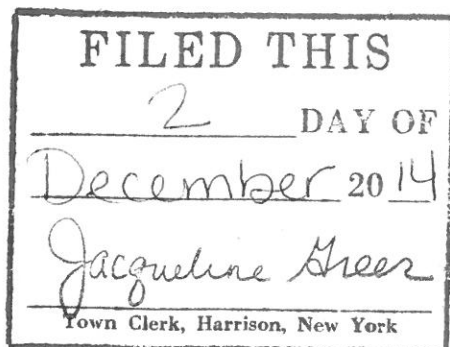 FILED THIS
2 DAY OF
December 20 14
Jacqueline Greer
Town Clerk, Harrison, New York